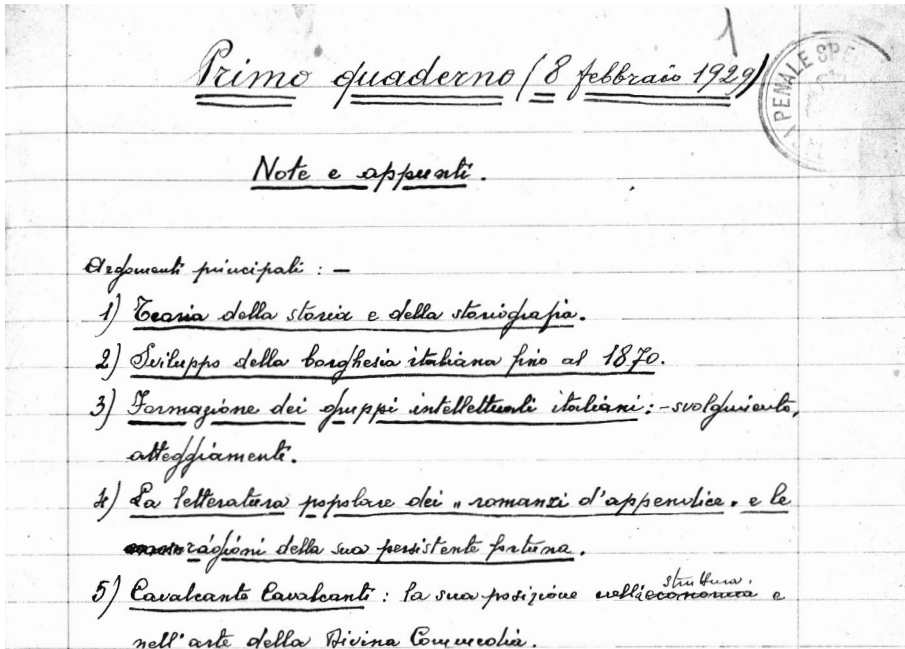 1
Primo quaderno (8 febbraio 1929)
PENALE SPE
Note e appunti.
Argomenti principali : —
1) Teoria della storia e della storiografia.
2) Sviluppo della borghesia italiana fino al 1870.
3) Formazione dei gruppi intellettuali italiani : - svolgimento,
atteggiamenti.
4) La letteratura popolare dei „ romanzi d'appendice „ e le
ragioni della sua persistente fortuna.
5) Cavalcante Cavalcanti : la sua posizione nella economia struttura e
nell'arte della Divina Commedia.